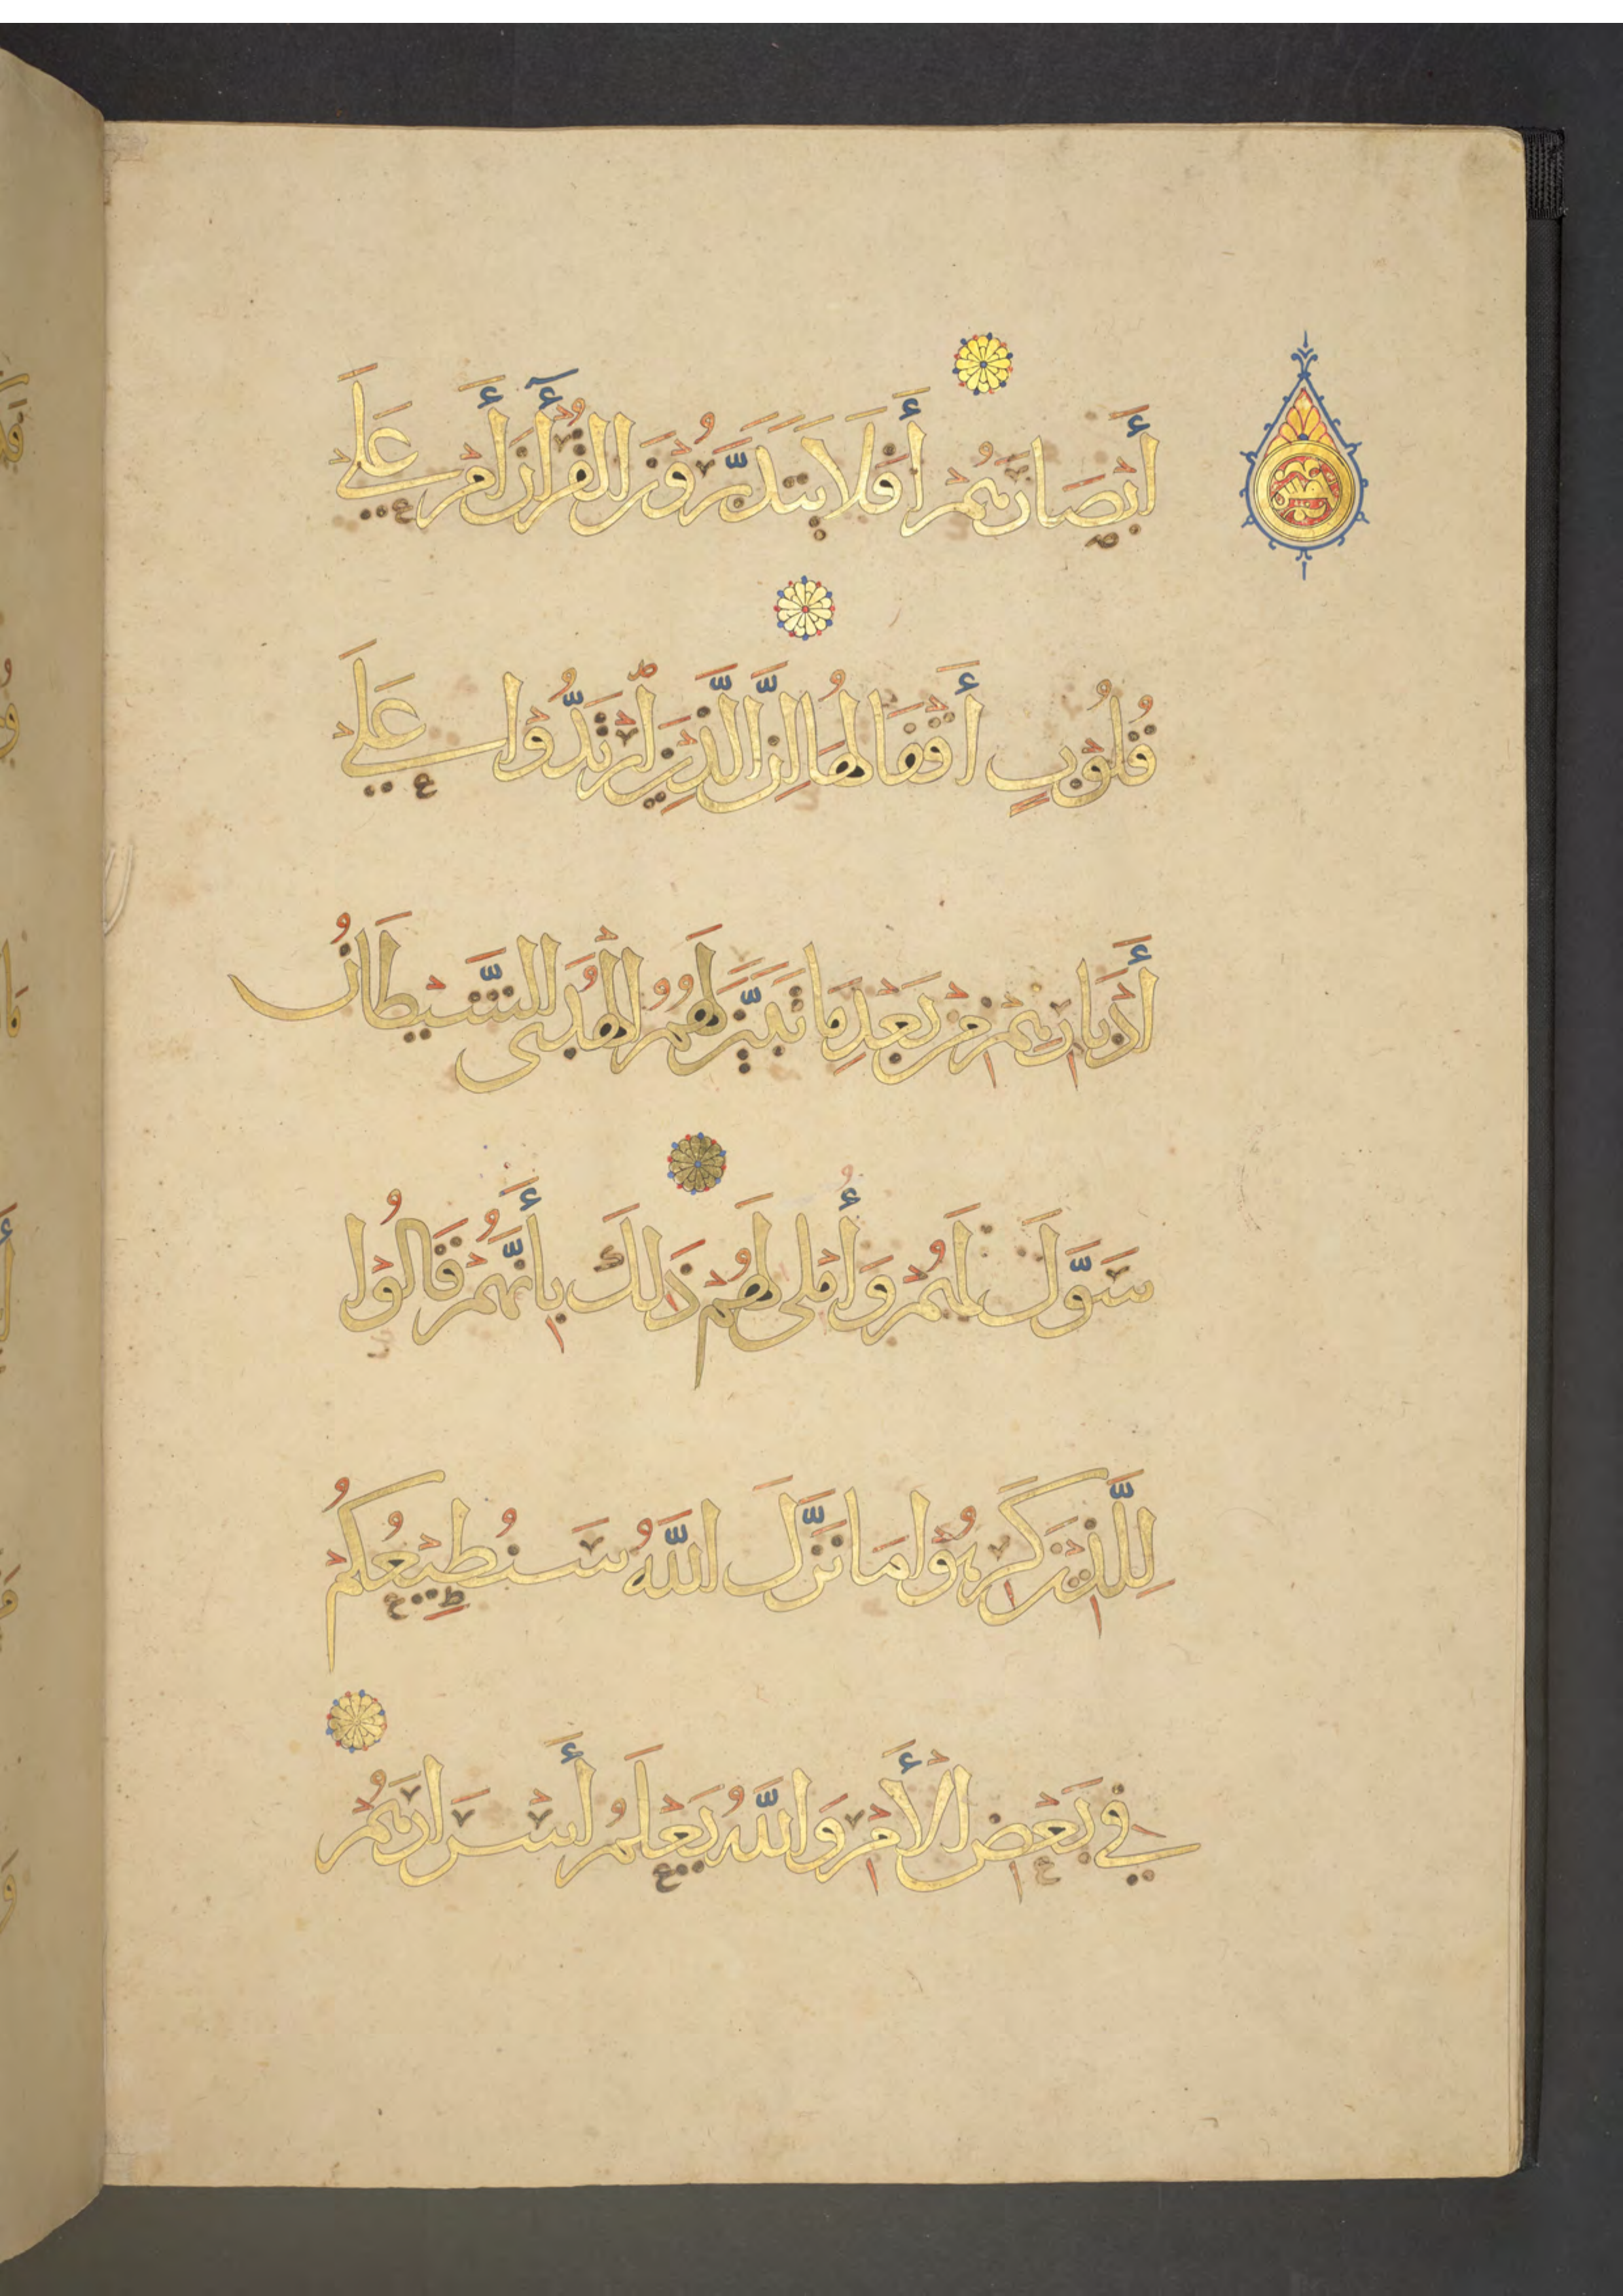 أَبْصَارَهُمْ أَفَلَا يَتَدَبَّرُونَ الْقُرْآنَ أَمْ عَلَى
قُلُوبٍ أَقْفَالُهَا إِنَّ الَّذِينَ ارْتَدُّوا عَلَى
أَدْبَارِهِمْ مِنْ بَعْدِ مَا تَبَيَّنَ لَهُمُ الْهُدَى الشَّيْطَانُ
سَوَّلَ لَهُمْ وَأُمْلِيَ لَهُمْ ذَلِكَ بِأَنَّهُمْ قَالُوا
لِلَّذِينَ كَرِهُوا مَا نَزَّلَ اللَّهُ سَنُطِيعُكُمْ
فِي بَعْضِ الْأَمْرِ وَاللَّهُ يَعْلَمُ أَسْرَارَهُمْ